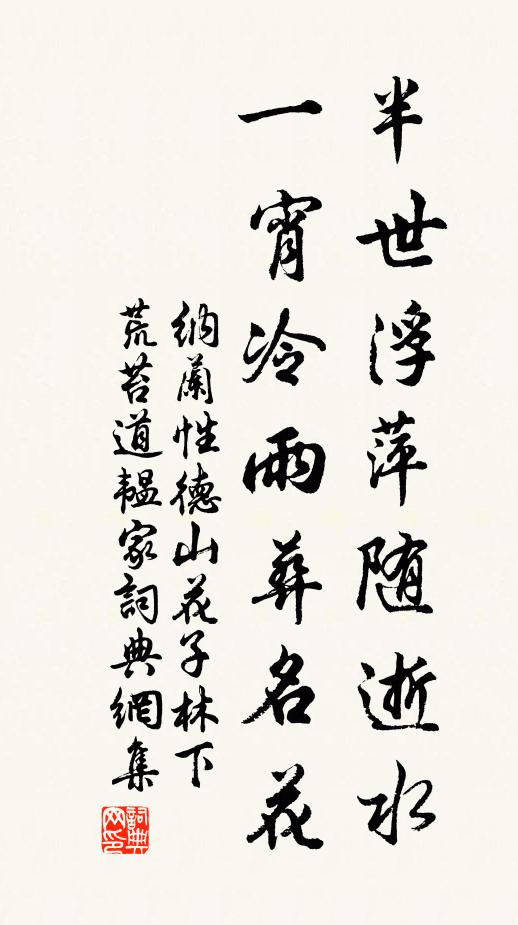 半世浮萍随逝水
一宵冷雨葬名花
納蘭性德山花子林下
荒苔道韞家詞典網集
詞典
网印